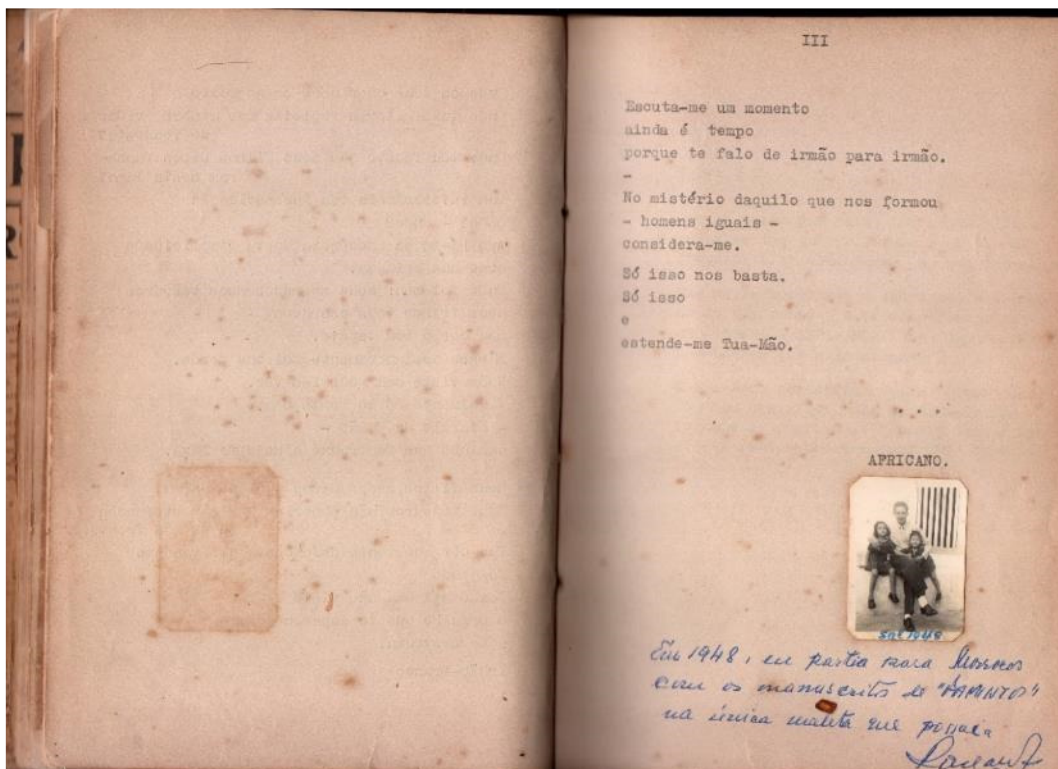 III
Escuta-me um momento
ainda é tempo
porque te falo de irmão para irmão.
-
No mistério daquilo que nos formou
- homens iguais -
considera-me.
Só isso nos basta.
Só isso
e
estende-me Tua-Mão.
. . .
AFRICANO.
Sal 1948
Em 1948, eu partia para Marrocos
com os manuscritos de "FAMINTOS"
na única maleta que possuía